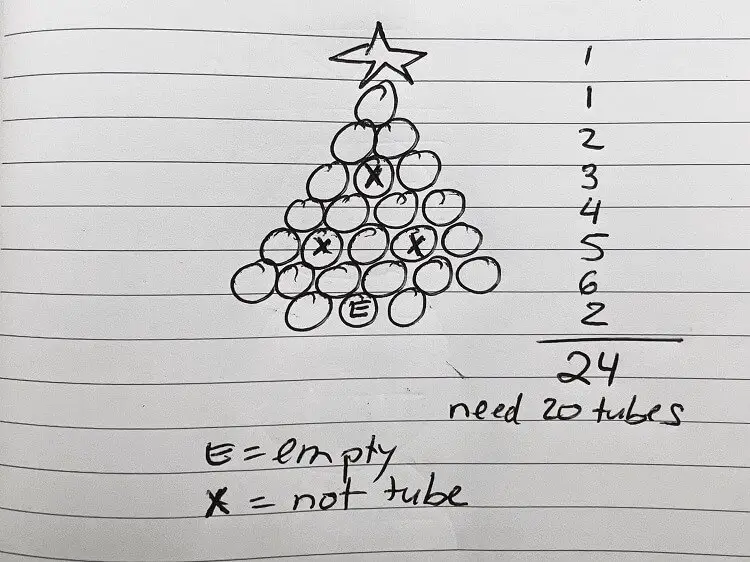 1
1
2
X 3
4
X X 5
6
E 2
24
need 20 tubes
E = empty
X = not tube